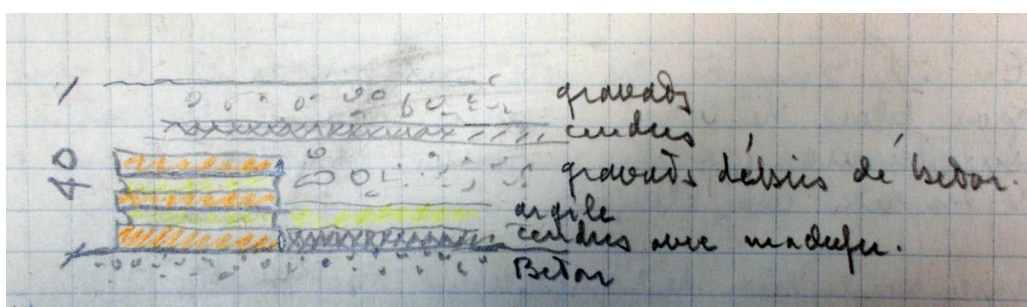 40
gravats
cendres
gravats débris de béton.
argile
cendres avec
Béton